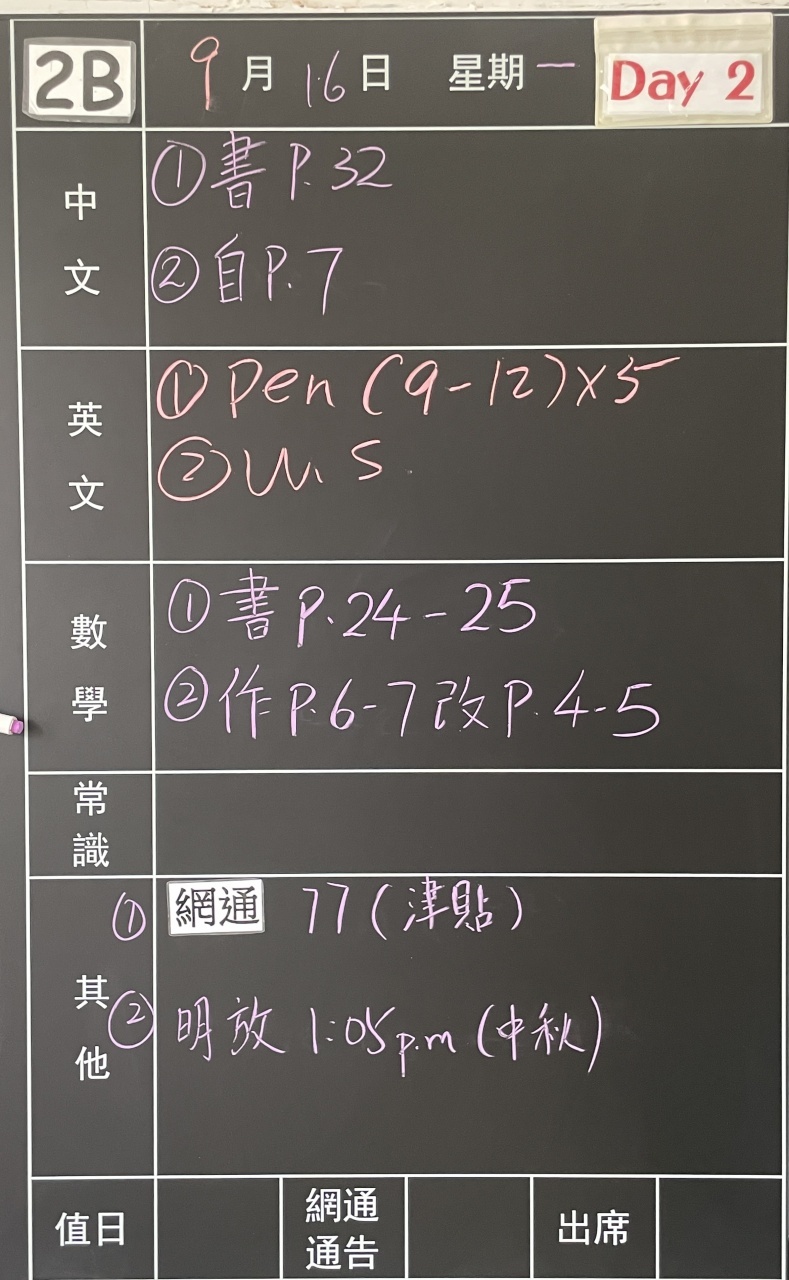 2B 9月16日 星期一 Day 2
中文
①書P.32
②自P.7
英文
①Pen (9-12)×5
②W.S
數學
①書P.24-25
②作P.6-7改P.4-5
常識
其他
①網通 77(津貼)
②明放 1:05p.m(中秋)
值日 網通通告 出席